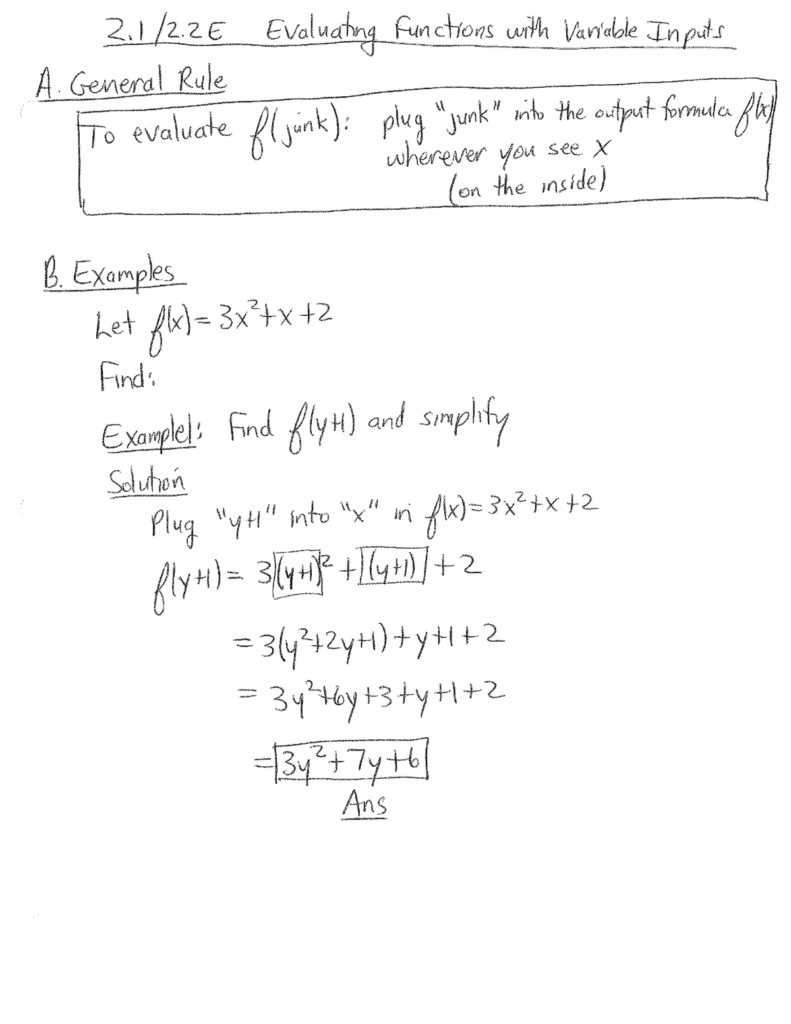 2.1/2.2E Evaluating Functions with Variable Inputs
A. General Rule
To evaluate f(junk): plug "junk" into the output formula f(x)
wherever you see x
(on the inside)
B. Examples
Let f(x) = 3x²+x+2
Find:
Example1: Find f(y+1) and simplify
Solution
Plug "y+1" into "x" in f(x)=3x²+x+2
f(y+1) = 3(y+1)² + (y+1) + 2
= 3(y²+2y+1)+y+1+2
= 3y²+6y+3+y+1+2
= 3y²+7y+6
Ans